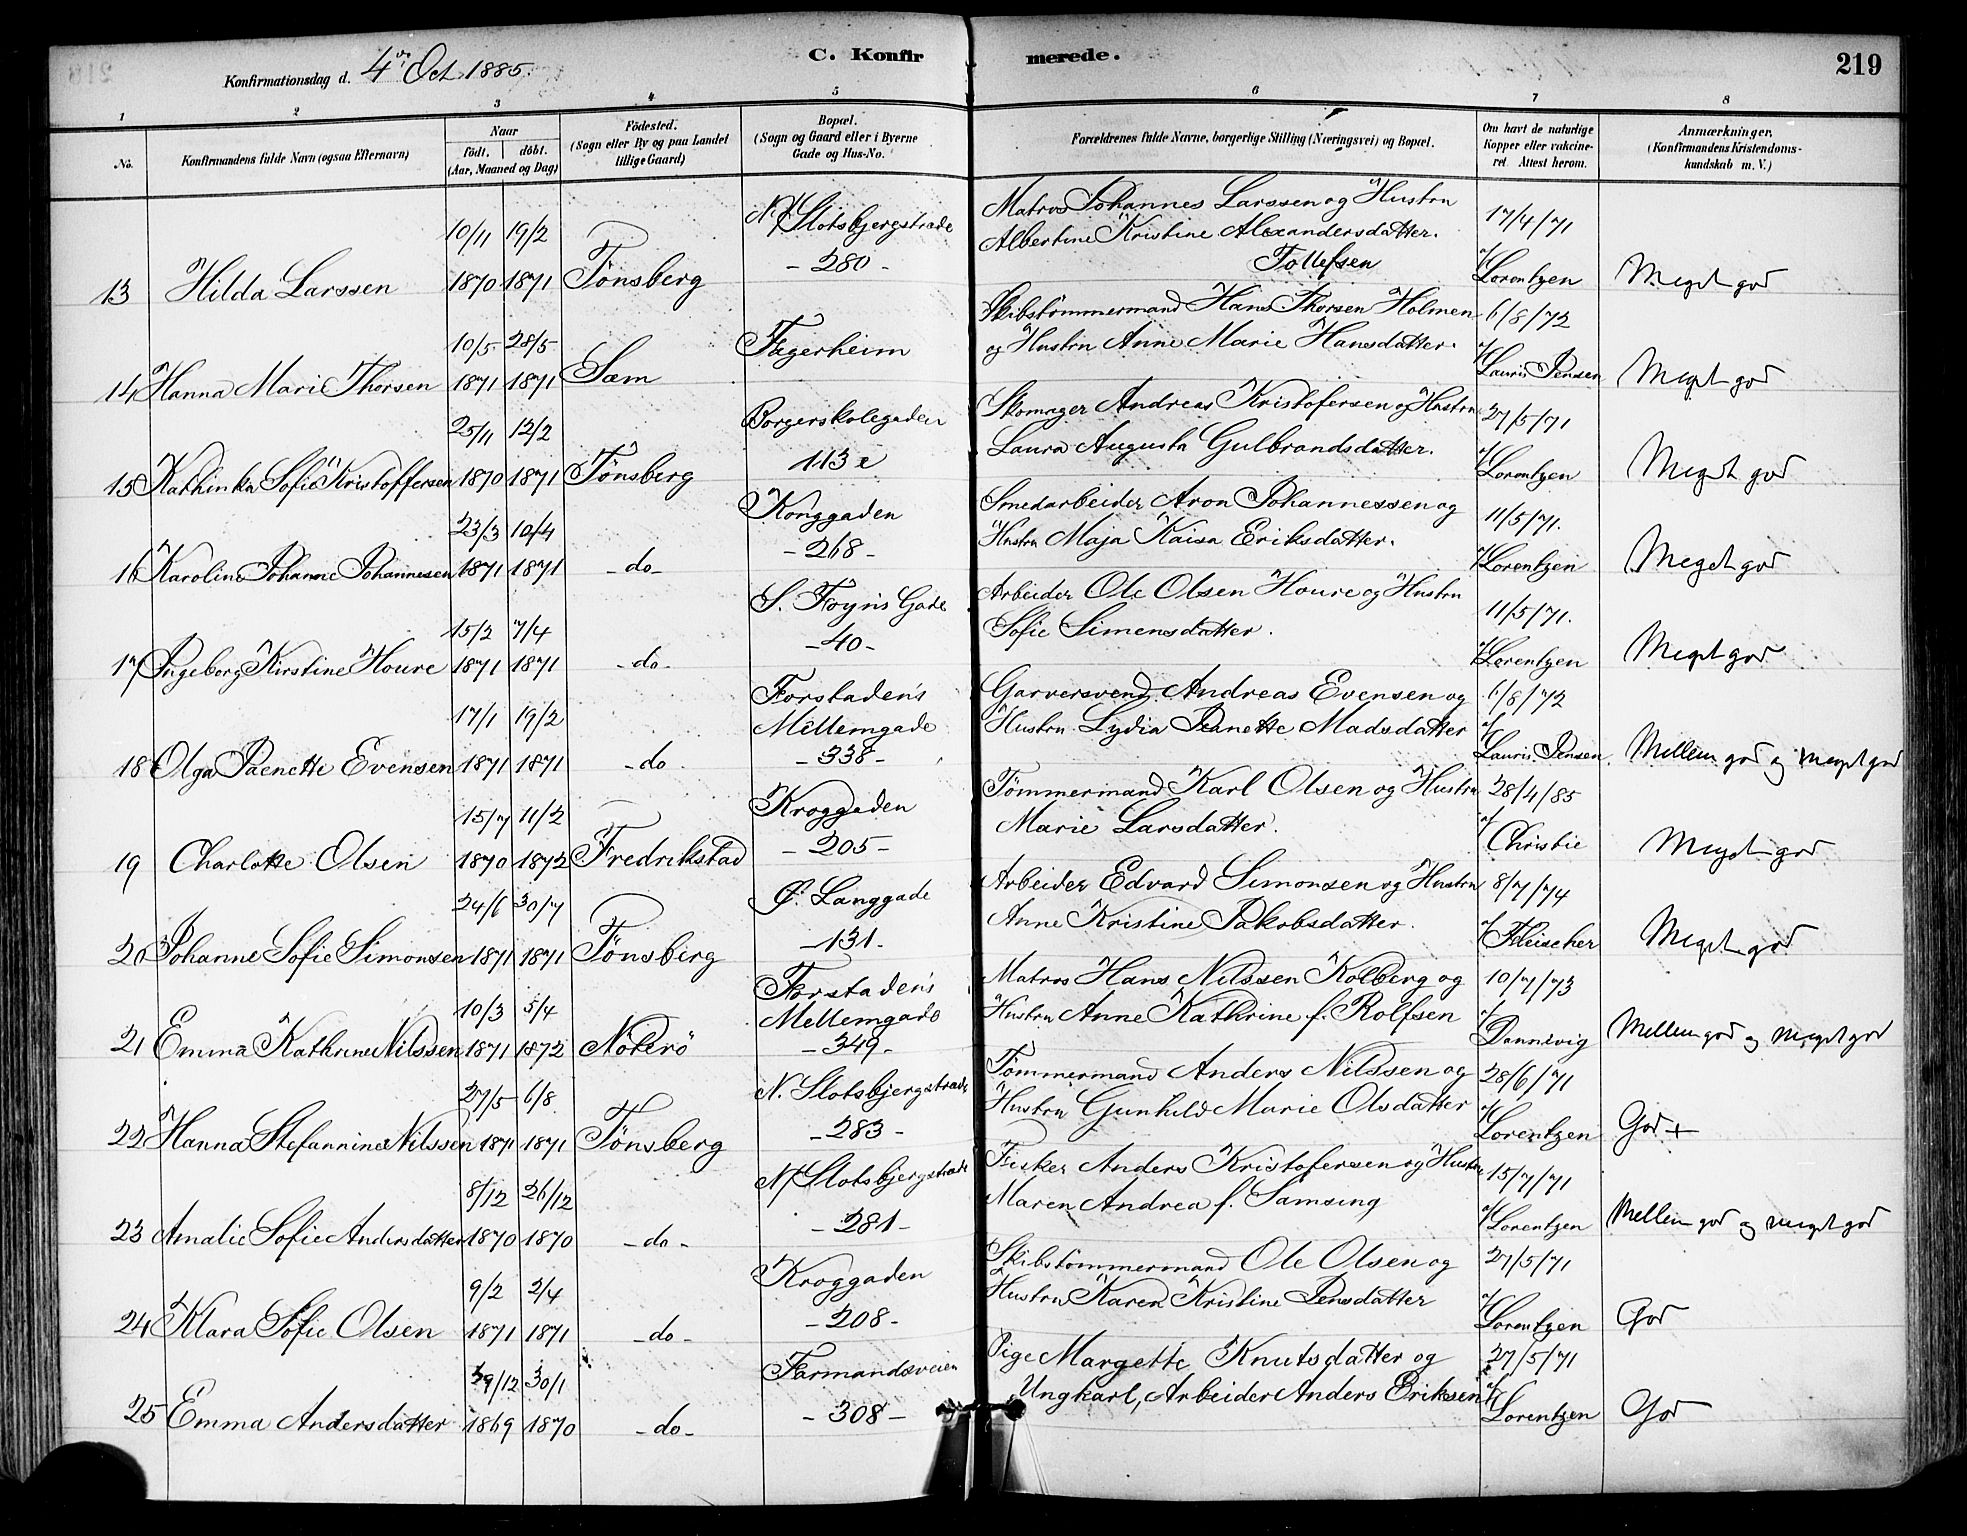 Konfirmationsdag d. 4de Oct 1885.
C. Konfir merede.
219
1 2 3 4 5 6 7 8
No.
Konfirmandens fulde Navn (ogsaa Efternavn)
Naar
födt. döbt.
(Aar, Maaned og Dag)
Födested.
(Sogn eller By og paa Landet
tillige Gaard)
Bopæl.
(Sogn og Gaard eller i Byerne
Gade og Hus-No.
Forældrenes fulde Navne, borgerlige Stilling (Næringsvei) og Bopæl.
Om havt de naturlige
Kopper eller vakcine-
ret. Attest herom.
Anmærkninger.
(Konfirmandens Kristendoms-
kundskab m. V.)
N. Slotsbjergstrade Matros Johannes Larssen og Hustru 17/4/71
10/11 19/2 Albertine Kristine Alexandersdatter.
- 280 - Tollefsen
13 Hilda Larssen 1870 1871 Tönsberg Lorentzen Meget god
Skibstömmermand Hans Thorsen Holmen 6/8/72
10/5 28/5 Fagerheim og Hustru Anne Marie Hansdatter.
14 Hanna Marie Thorsen 1871 1871 Sæm Lauris Jensen Meget god
25/11 12/2 Borgerskolegaden Skomager Andreas Kristofersen og Hustru 27/5/71
113 e Laura Augusta Gulbrandsdatter.
15 Kathinka Sofie Kristoffersen 1870 1871 Tönsberg Lorentzen Meget god
23/3 10/4 Konggaden Smedarbeider Aron Johannessen og 11/5/71.
- 268 - Hustru Maja Kaisa Eriksdatter.
16 Karoline Johanne Johannesen 1871 1871 - do - Lorentzen Meget god
15/2 7/4 S. Foyns Gade Arbeider Ole Olsen Houre og Hustru 11/5/71.
- 40 - Sofie Simensdatter.
17 Ingeborg Kirstine Houre 1871 1871 - do - Lorentzen Meget god
17/1 19/2 Forstadens Garversvend Andreas Evensen og 6/8/72
Mellemgade Hustru Lydia Jeanette Madsdatter
18 Olga Jaenette Evensen 1871 1871 - do - 338 - Lauris Jensen Mellem god og meget god
15/7 11/2 Kroggaden Tömmermand Karl Olsen og Hustru 28/4/85
- 205 - Marie Larsdatter.
19 Charlotte Olsen 1870 1872 Fredrikstad Christie Meget god
24/6 30/7 Ö. Langgade Arbeider Edvard Simonsen og Hustru 8/7/74
- 131 - Anne Kristine Jakobsdatter.
20 Johanne Sofie Simonsen 1871 1871 Tönsberg Fleischer Meget god
10/3 5/4 Forstadens Matros Hans Nilssen Kolberg og 10/7/73
Mellemgade Hustru Anne Kathrine f. Rolfsen
21 Emma Kathrine Nilssen 1871 1872 Nöterö - 349 - Dannevig Mellem god og meget god
27/5 6/8 N. Slotsbjergstrade Tömmermand Anders Nilssen og 28/6/71
- 283 - Hustru Gunhild Marie Olsdatter
22 Hanna Stefannine Nilssen 1871 1871 Tönsberg Lorentzen God +
8/12 26/12 N. Slotsbjergstrade Fisker Anders Kristofersen og Hustru 15/7/71
- 281 - Maren Andrea f. Samsing
23 Amalie Sofie Andersdatter 1870 1870 - do - Lorentzen Mellem god og meget god
9/2 2/4 Kroggaden Skibstömmermand Ole Olsen og 27/5/71
- 208 - Hustru Karen Kristine Jensdatter
24 Klara Sofie Olsen 1871 1871 - do - Lorentzen God
29/12 30/1 Farmandsveien Pige Margette Knutsdatter og 27/5/71
- 308 - Ungkarl, Arbeider Anders Eriksen
25 Emma Andersdatter 1869 1870 - do - Lorentzen God